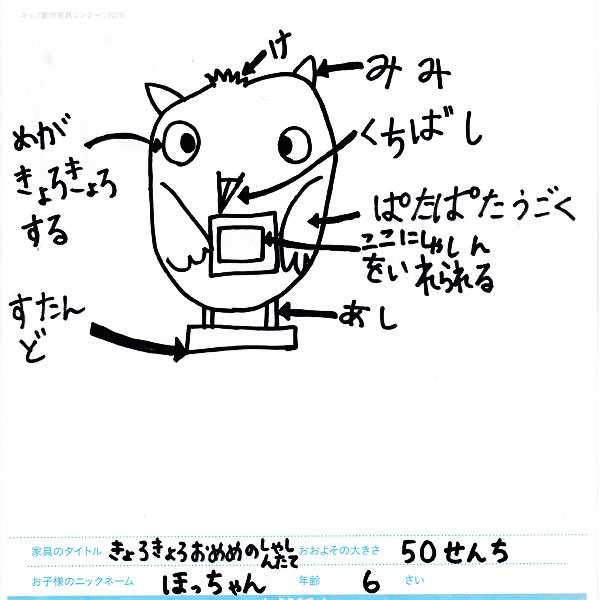 キッズ動作家具コンクール2020
け
みみ
めが
きょろきょろ
する
くちばし
ぱたぱたうごく
ここにしゃしん
をいれられる
すたん
ど
あし
家具のタイトル きょろきょろおめめのしゃしんたて おおよその大きさ 50せんち
お子様のニックネーム ほっちゃん 年齢 6 さい